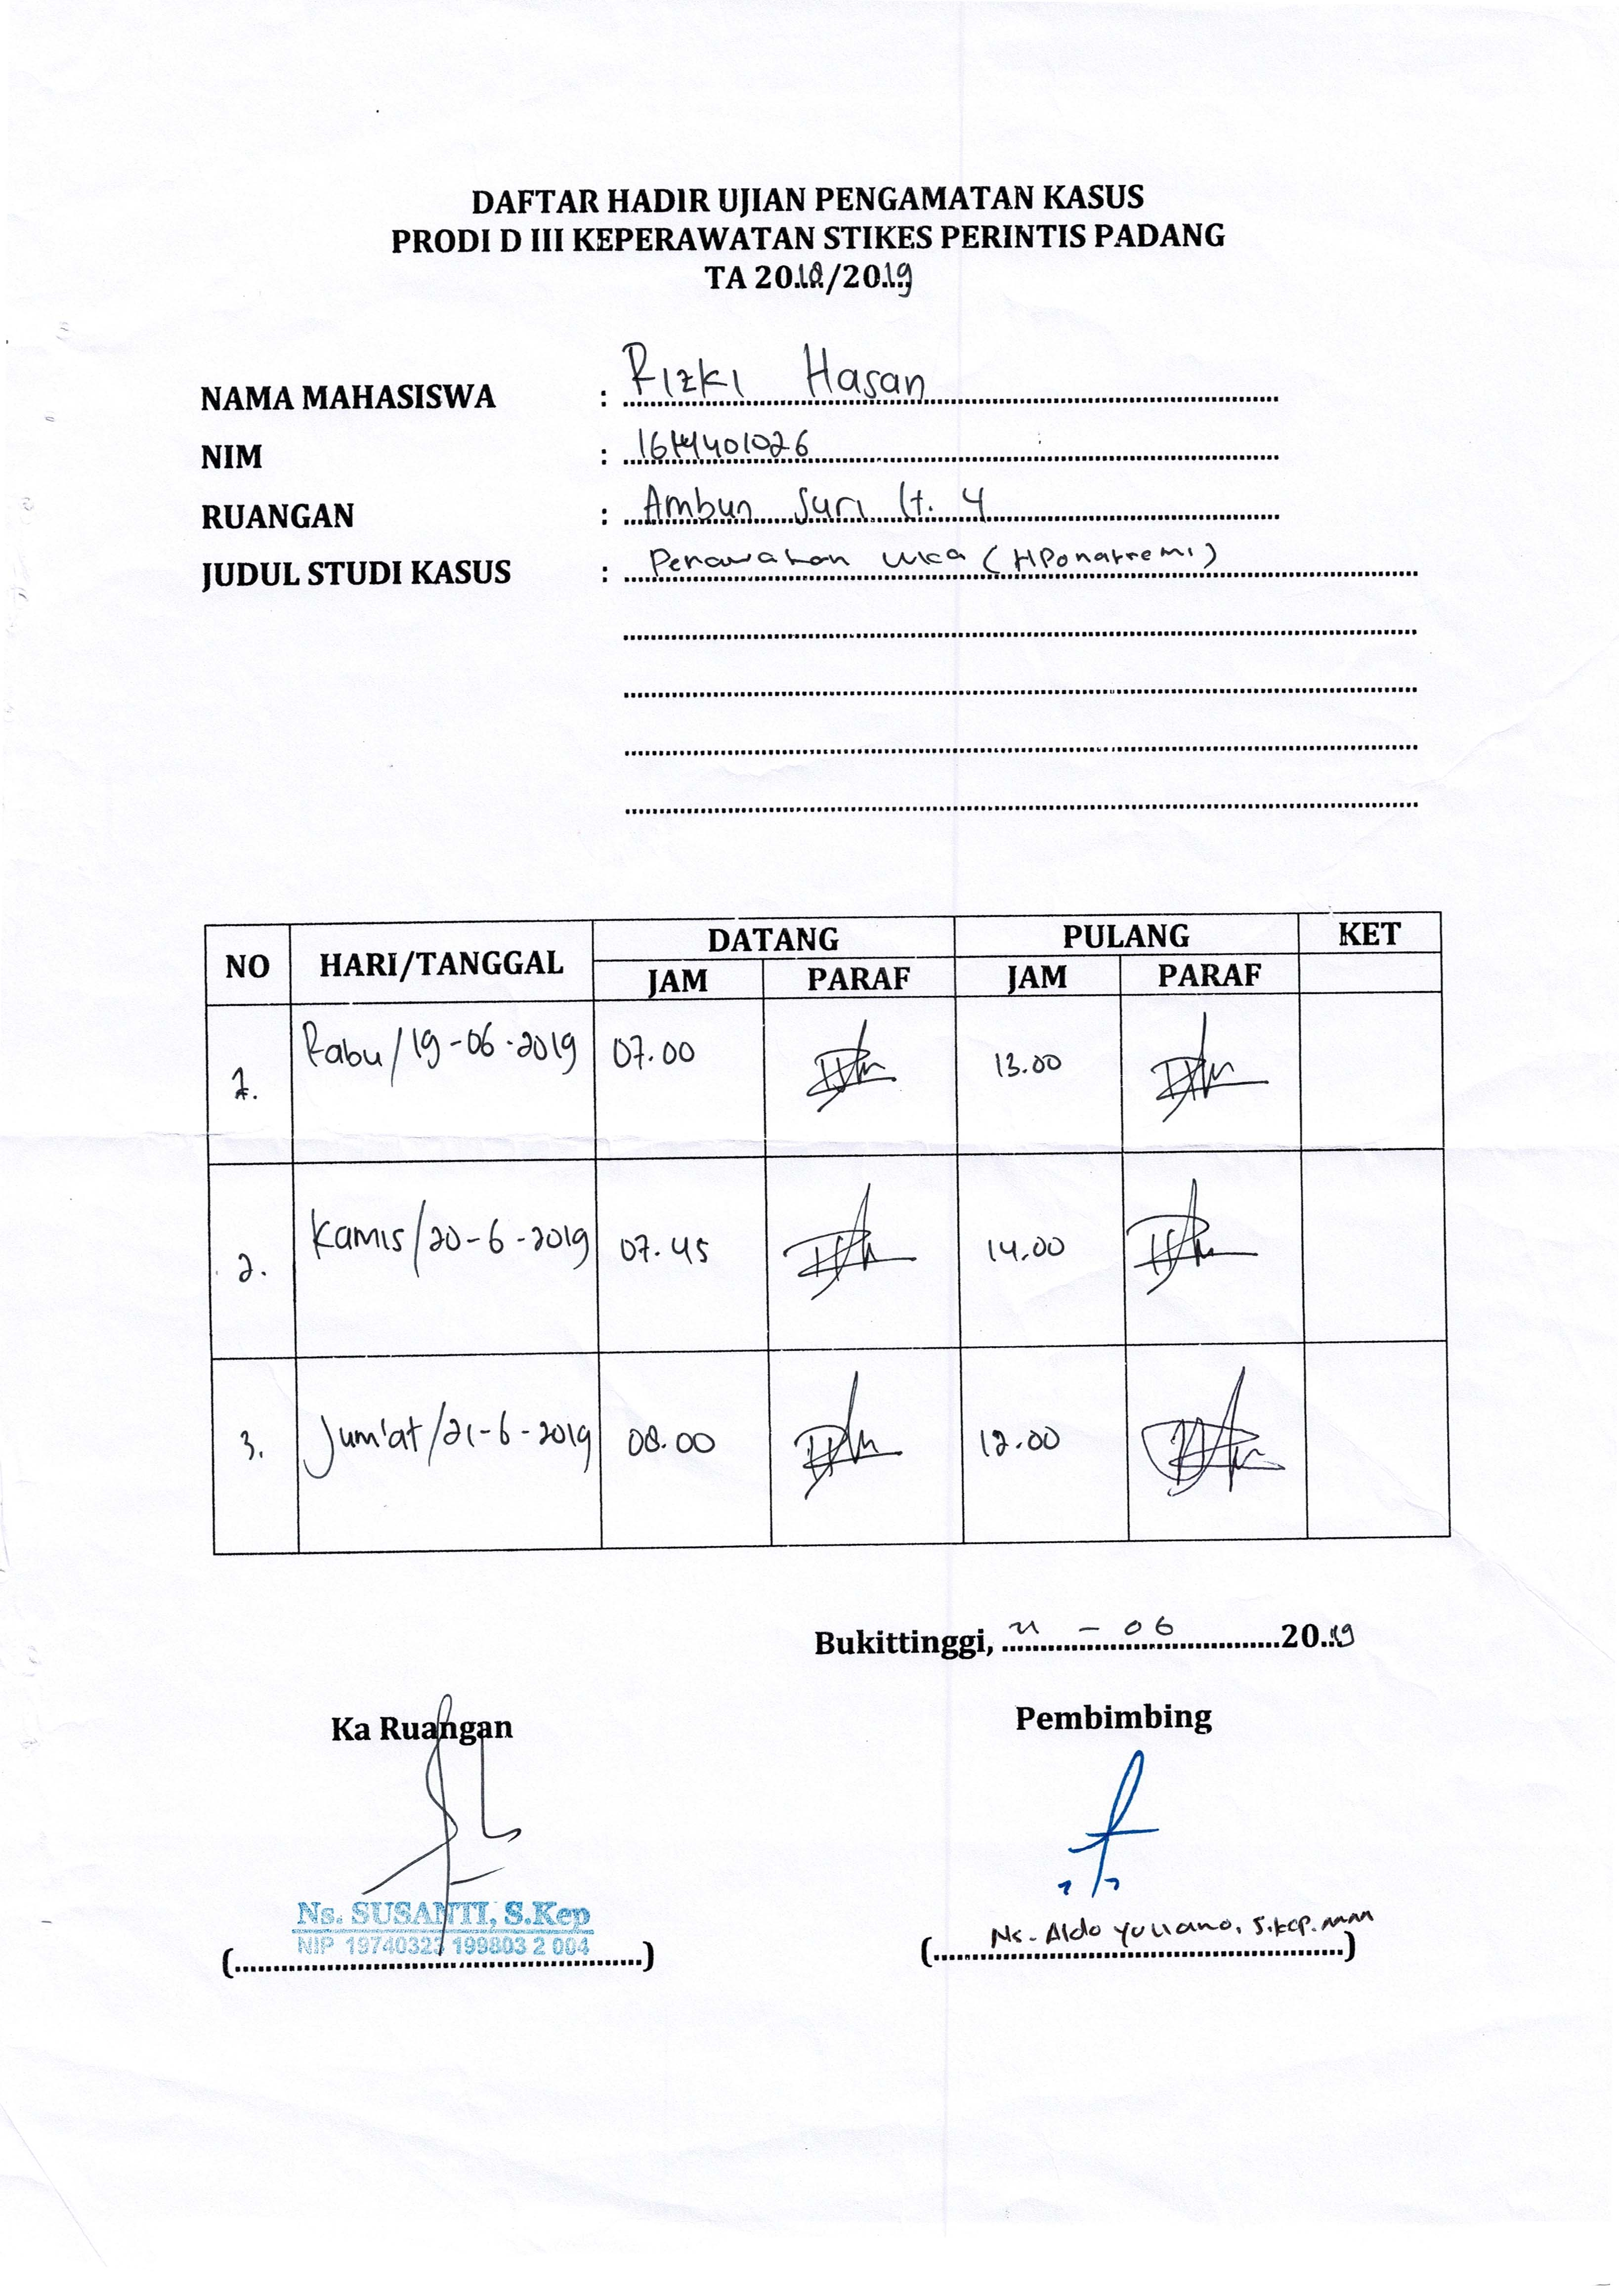 DAFTAR HADIR UJIAN PENGAMATAN KASUS
PRODI D III KEPERAWATAN STIKES PERINTIS PADANG
TA 2018/2019
NAMA MAHASISWA : Rizki Hasan
NIM :
RUANGAN : Ambun Suri lt. 4
JUDUL STUDI KASUS : Perawatan luka (HPonatremi)
NO HARI/TANGGAL DATANG PULANG KET
JAM PARAF JAM PARAF
1. Rabu/19-06-2019 07.00 13.00
2. Kamis/20-6-2019 07.45 14.00
3. Jum'at/21-6-2019 08.00 12.00
Bukittinggi, 21 - 06 2019
Ka Ruangan Pembimbing
Ns. SUSANTI, S.Kep
NIP 19740323 199803 2 004
Ns. Aldo Yuliano, S.Kep.MM